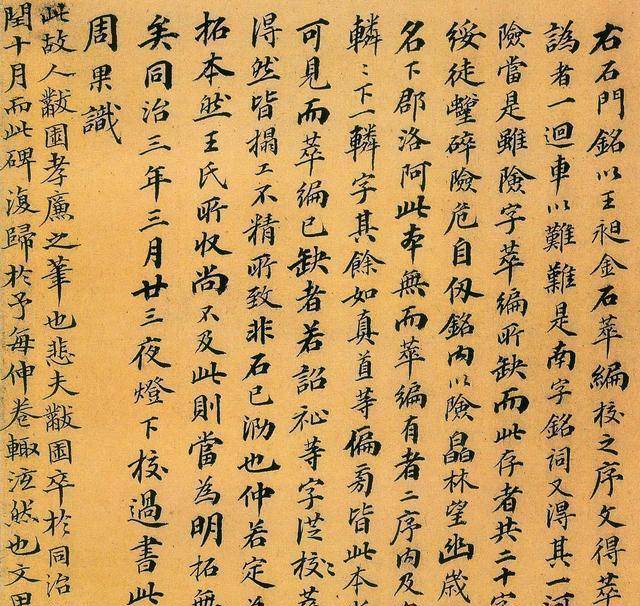 右石門銘以王昶金石萃編校之序文得萃
譌者一迴車以難難是南字銘詞又得其一河
險當是雖險字萃編所缺而此存者共二十字
綏徒碎險危自仭銘内以險晶林望幽歲
名下郡洛阿此本無而萃編有者二序内及
轔〻下一轔字其餘如真首等偏旁皆此本
可見而萃編已缺者若詔祉等字校〻
得然皆搨工不精所致非石已泐也仲若定
拓本然王氏所收尚不及此則當為明拓無
矣同治三年三月廿三夜燈下校過書此
周果識
此故人黻園孝廉之筆也悲夫黻園卒於同治
閏十月而此碑復歸於予每伸卷輒泫然也文田